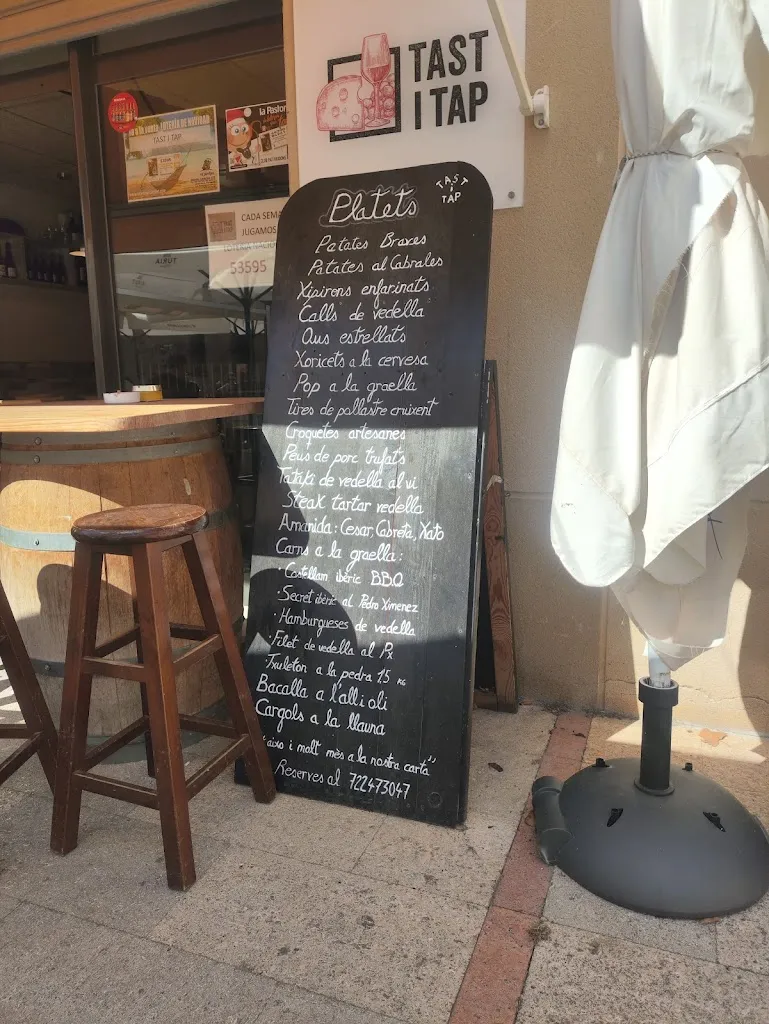 TAST
I TAP
LOTERÍA DE NAVIDAD
TAST I TAP
la Pastor
CADA SEMA
JUGAMOS
LOTERÍA NACIO
53595
Platets
TAST i TAP
Patates Braves
Patates al Cabrales
Xipirons enfarinats
Calls de vedella
Ous estrellats
Xoricets a la cervesa
Pop a la graella
Tires de pollastre cruixent
Croquetes artesanes
Peus de porc trufats
Tataki de vedella al vi
Steak tartar vedella
Amanida: Cesar, Cabreta, Xato
Carns a la graella:
· Costellam ibèric BBQ
· Secret ibèric al Pedro Ximenez
· Hamburgueses de vedella
· Filet de vedella al Px
· Txuleton a la pedra 1.5 KG
Bacalla a l'all i oli
Cargols a la llauna
"aixo i molt mès a la nostra carta"
Reserves al 722473047